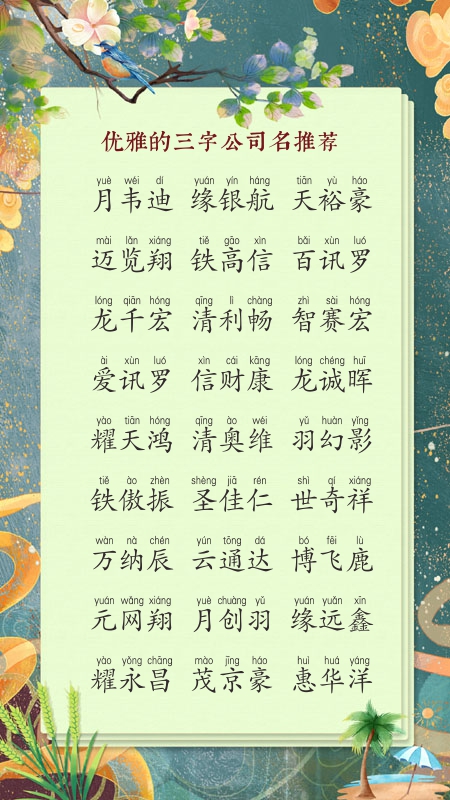 优雅的三字公司名推荐
yuè wéi dí yuán yín háng tiān yù háo
月韦迪 缘银航 天裕豪
mài lǎn xiáng tiě gāo xìn bǎi xùn luó
迈览翔 铁高信 百讯罗
lóng qiān hóng qīng lì chàng zhì sài hóng
龙千宏 清利畅 智赛宏
ài xùn luó xìn cái kāng lóng chéng huī
爱讯罗 信财康 龙诚晖
yào tiān hóng qīng ào wéi yǔ huàn yǐng
耀天鸿 清奥维 羽幻影
tiě ào zhèn shèng jiā rén shì qí xiáng
铁傲振 圣佳仁 世奇祥
wàn nà chén yún tōng dá bó fēi lù
万纳辰 云通达 博飞鹿
yuán wǎng xiáng yuè chuàng yǔ yuán yuǎn xīn
元网翔 月创羽 缘远鑫
yào yǒng chāng mào jīng háo huì huá yáng
耀永昌 茂京豪 惠华洋